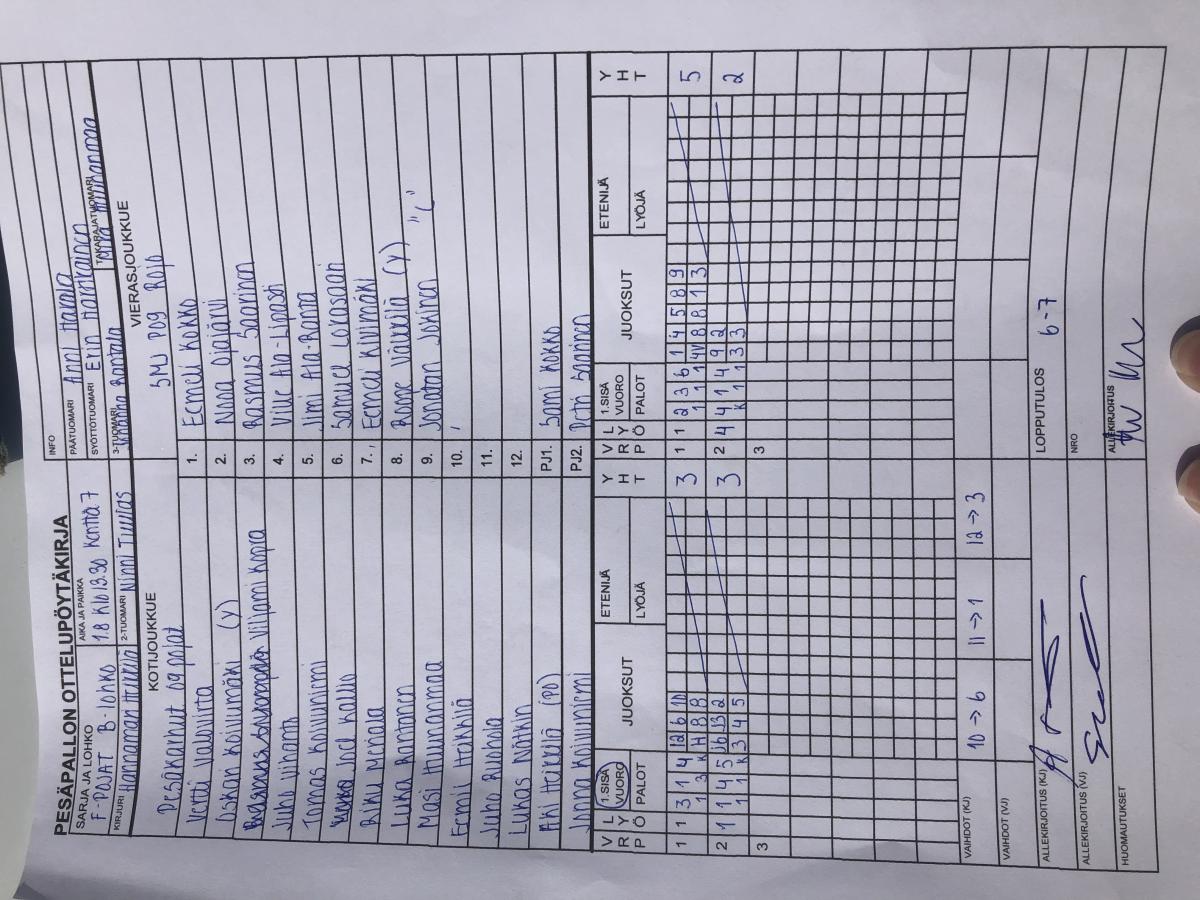 PESÄPALLON OTTELUPÖYTÄKIRJA
INFO
SARJA JA LOHKO F-POJAT B-lohko
AIKA JA PAIKKA 1.8 Klo 13.30 Kenttä 7
PÄÄTUOMARI Anni
SYÖTTÖTUOMARI
KIRJURI
2-TUOMARI Ninni
3-TUOMARI Rantala
TAKARAJATUOMARI
KOTIJOUKKUE
VIERASJOUKKUE
Pesäkarhut 09 pojat
SMJ P09 Rojo
Vertti Valovirta 1. Eemeli Kokko
Oskari Koivumäki (Y) 2. Ojajärvi
Viljami Kopra 3. Rasmus Saarinen
Juho 4. Ville Ala-Lipasti
Tomas Koivuniemi 5. Jimi Ala-Ranna
Joel Kallo 6. Samuel Lokasaari
Riku Merola 7. Eemeli Kivimäki
Luka Rantanen 8. (Y)
Masi Huunanmaa 9. Jonatan Jokinen "("
Eemil Heikkilä 10.
Juho Ruohola 11.
Lukas Nätkin 12.
Aki Heikkilä (PO) PJ1. Sami Kokko
Jonna Koivuniemi PJ2. Petri Saarinen
V R P L Y Ö 1.SISÄ VUORO PALOT JUOKSUT ETENIJÄ LYÖJÄ Y H T
V R P L Y Ö 1.SISÄ VUORO PALOT JUOKSUT ETENIJÄ LYÖJÄ Y H T
1 1 3 1 4 12 6 10 3
1 3 H 8 8
1 1 2 3 6 1 4 5 8 9 5
1 1 1 4V 8 8 1 3
2 1 1 4 5 13 2 3
1 1 K 3 4 5
2 4 4 1 4 9 2 2
K 1 1 3 3
3
3
VAIHDOT (KJ) 10→6 11→1 12→3
VAIHDOT (VJ)
ALLEKIRJOITUS (KJ)
LOPPUTULOS 6-7
ALLEKIRJOITUS (VJ)
NRO
HUOMAUTUKSET
ALLEKIRJOITUS